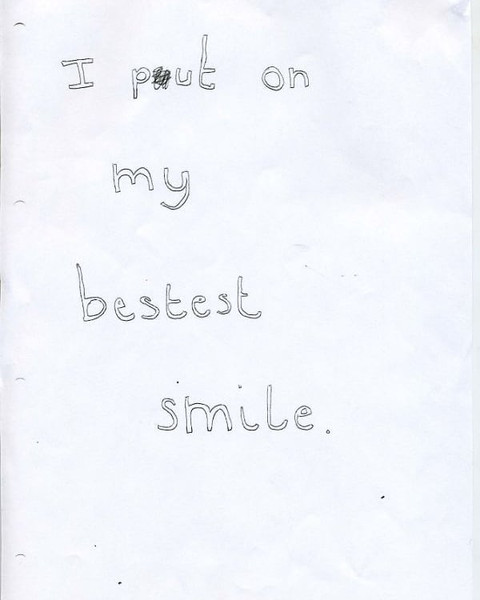 I put on
my
bestest
smile.